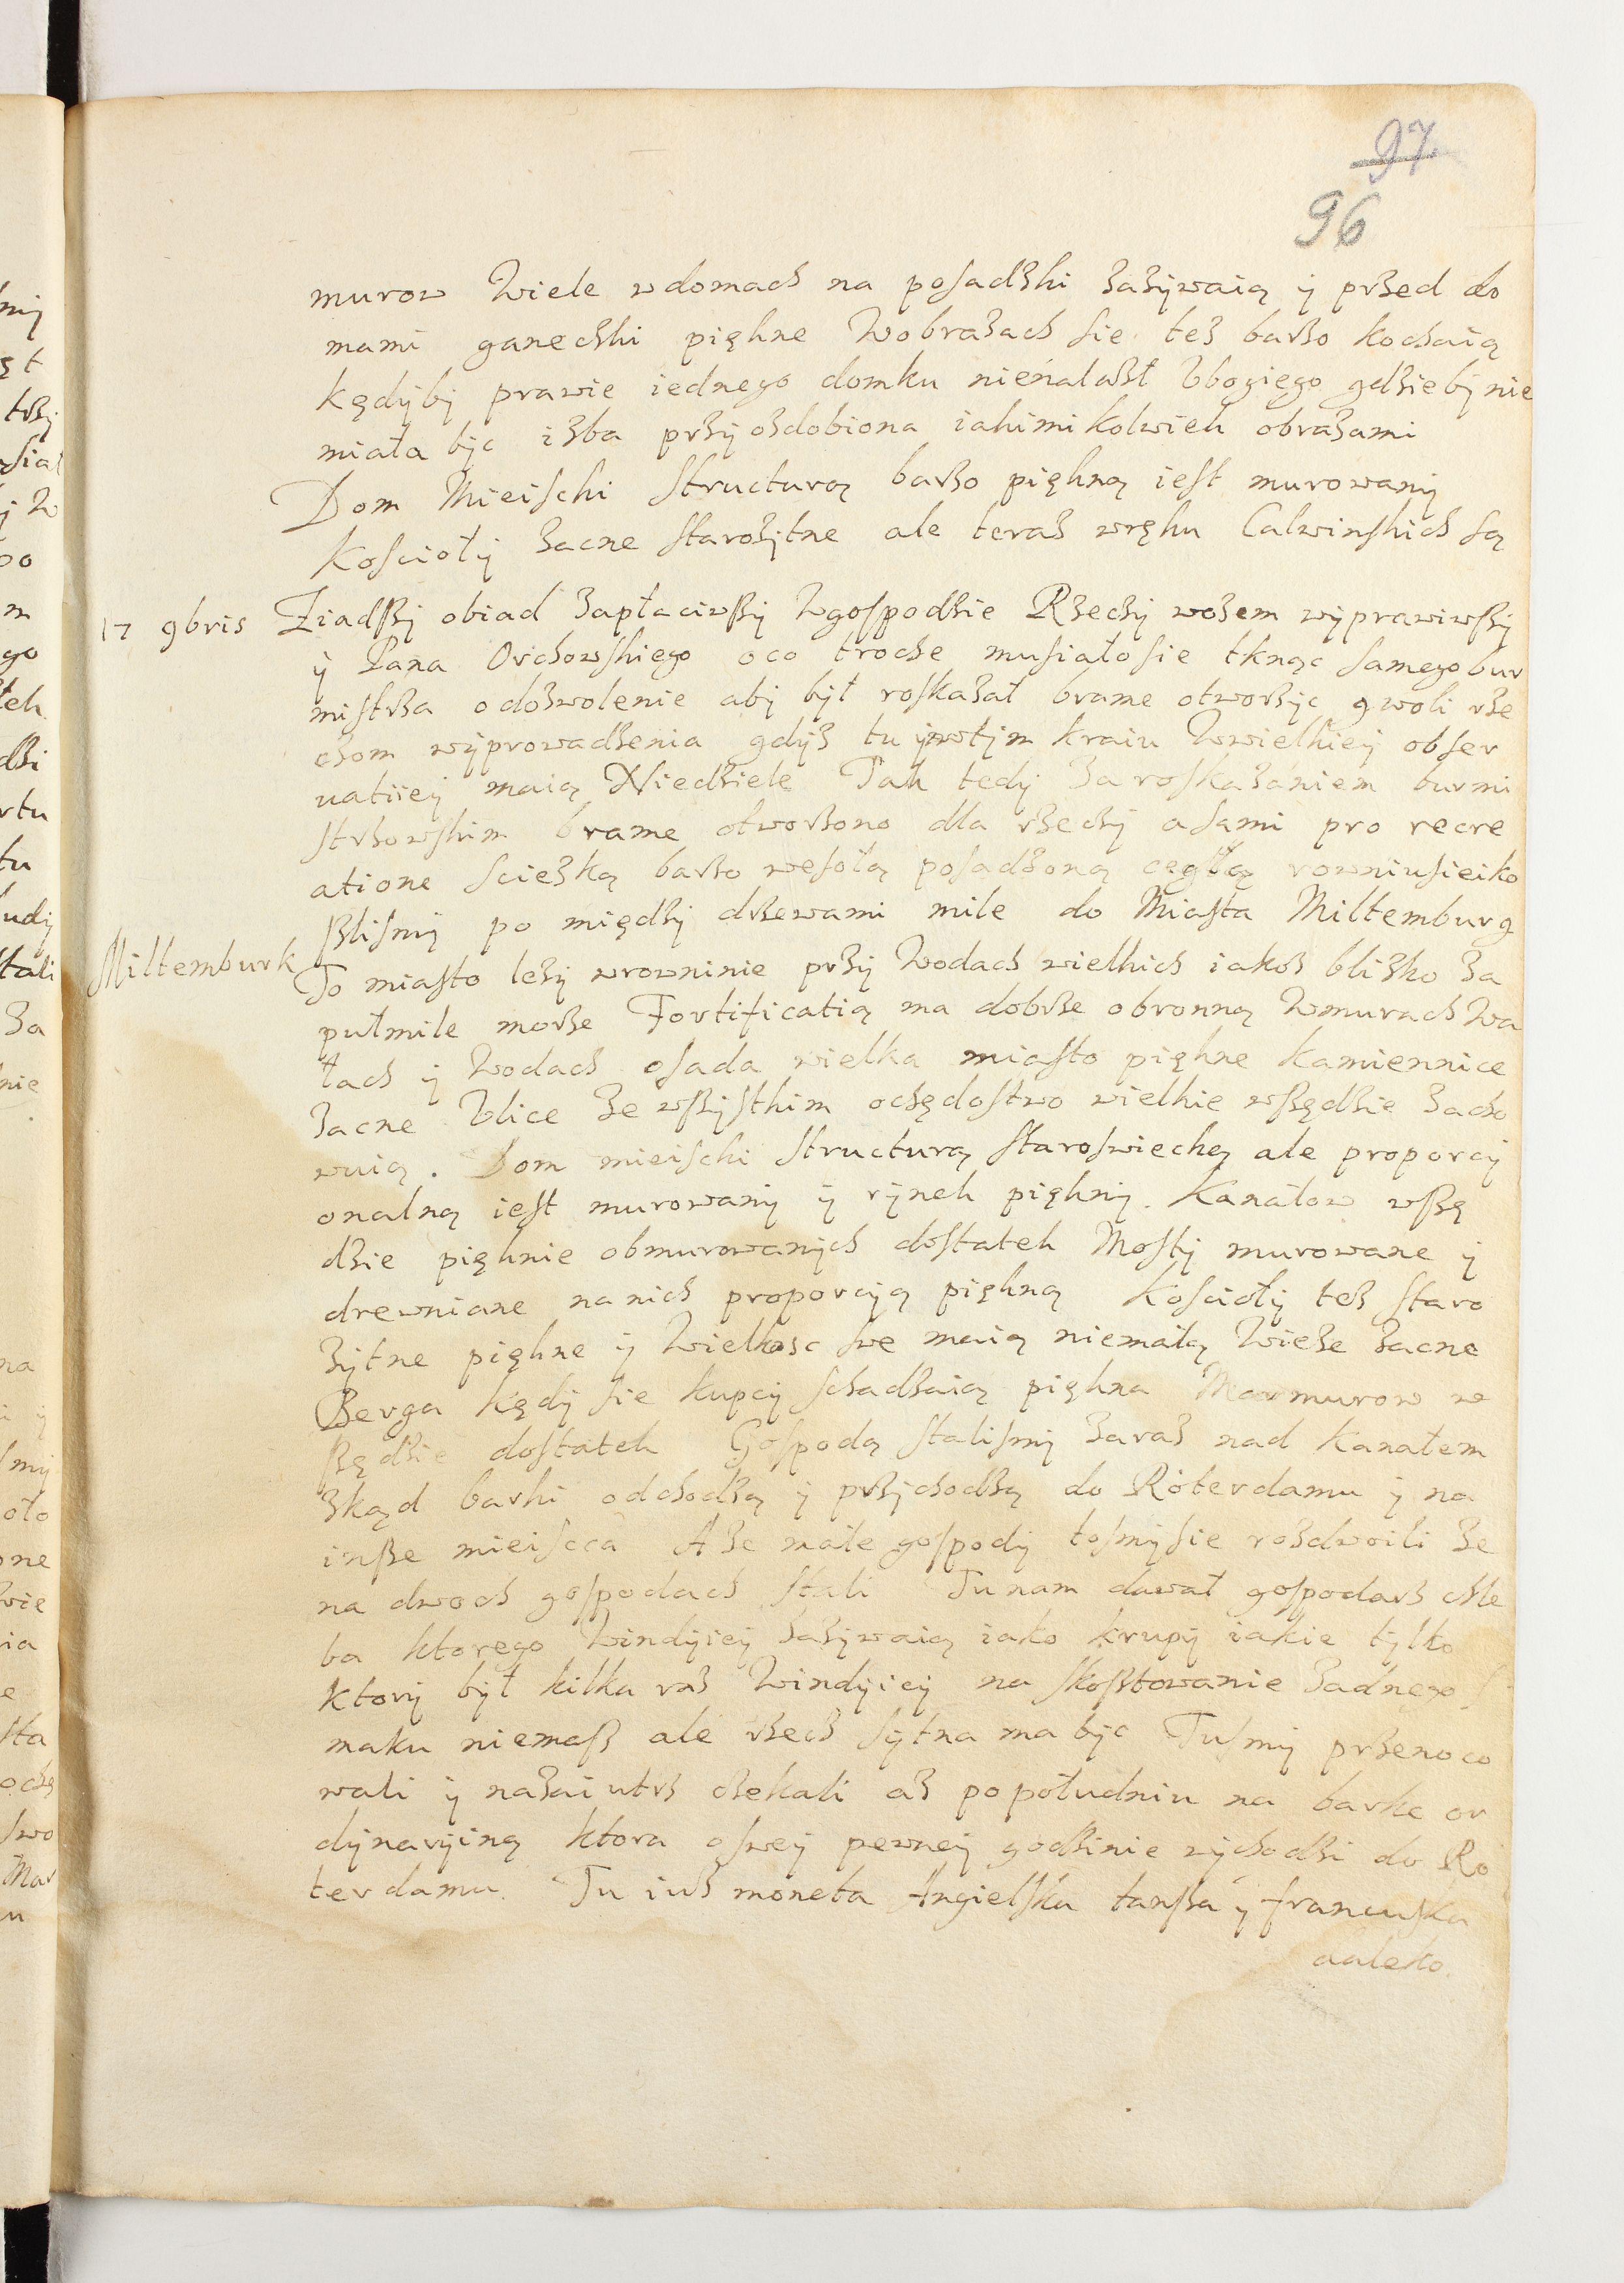 97
96
murow Wiele wdomach na posadzki zazywaią y przed do
mami ganeczki piękne Wobrazach sie tez barzo kochaią
kędyby prawie iednego domku nienalazł Vbogiego gdzieby nie
miała byc izba przyozdobiona iakimikolwiek obrazami
Dom Mieiski structurą barzo piękną iest murowany
Kościoły zacne starozytne ale teraz wręku Calwinskich są
17 9bris Ziadszy obiad zapłaciwszy Wgospodzie Rzeczy wozem wyprawiwszy
y Pana Orchowskiego oco troche musiało sie tknąc samego bur
mistrza odozwolenie aby był roskazał brame otworzyc gwoli rze
czom wyprowadzenia gdyz tu ywtym kraiu Wwielkiey obser
uatiiey maią Niedziele Tak tedy za roskazaniem burmi
strzowskim brame otworzono dla rzeczy a sami pro recre
atione scieszką barzo wesołą posadzoną cegłą rowniusieiko
szlismy po między drzewami mile do Miasta Miltemburg
Miltemburk To miasto lezy wrowninie przy Wodach wielkich iakoz blizko za
pułmile morze Fortificatią ma dobrze obronną Wmurach Wa
łach y Wodach osada wielka miasto piękne kamiennice
zacne Vlice ze wszystkim ochędostwo wielkie wszędzie zacho
wuią. Dom mieiski structurą staroswiecką ale proporcy
onalną iest murowany y rynek piękny. Kanałow wszę
dzie pięknie obmurowanych dostatek Mosty murowane y
drewniane nanich proporcyą piękną Kościoły tez staro
zytne piękne y Wielkosc swe maią niemałą Wieze zacne
Berga kędy sie kupcy schadzaią piękna Marmurow w
szędzie dostatek Gospodą stalismy zaraz nad kanałem
zkąd barki odchodzą y przychodzą do Roterdamu y na
insze mieisca A ze małe gospody tosmysie rozdwoili ze
na dwoch gospodach stali Tu nam dawał gospodarz chle
ba ktorego Windyiey zazywaią iako krupy iakie tylko
ktory był kilka raz Windyiey na skosztowanie zadnego s
maku niemasz ale rzecz sytna ma byc Tusmy przenoco
wali y nazaiutrz czekali az popołudniu na barke or
dynaryiną ktora oswey pewney godzinie wychodzi do Ro
terdamu. Tu iuz moneta Angielska tansza y francuska
daleko.